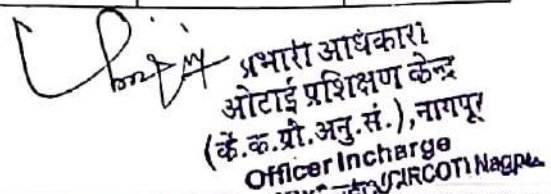 प्रभारी अधिकारी
ओटाई प्रशिक्षण केन्द्र
(के.क.प्रौ.अनु.सं.),नागपूर
Officer Incharge
CIRCOT) Nagpur